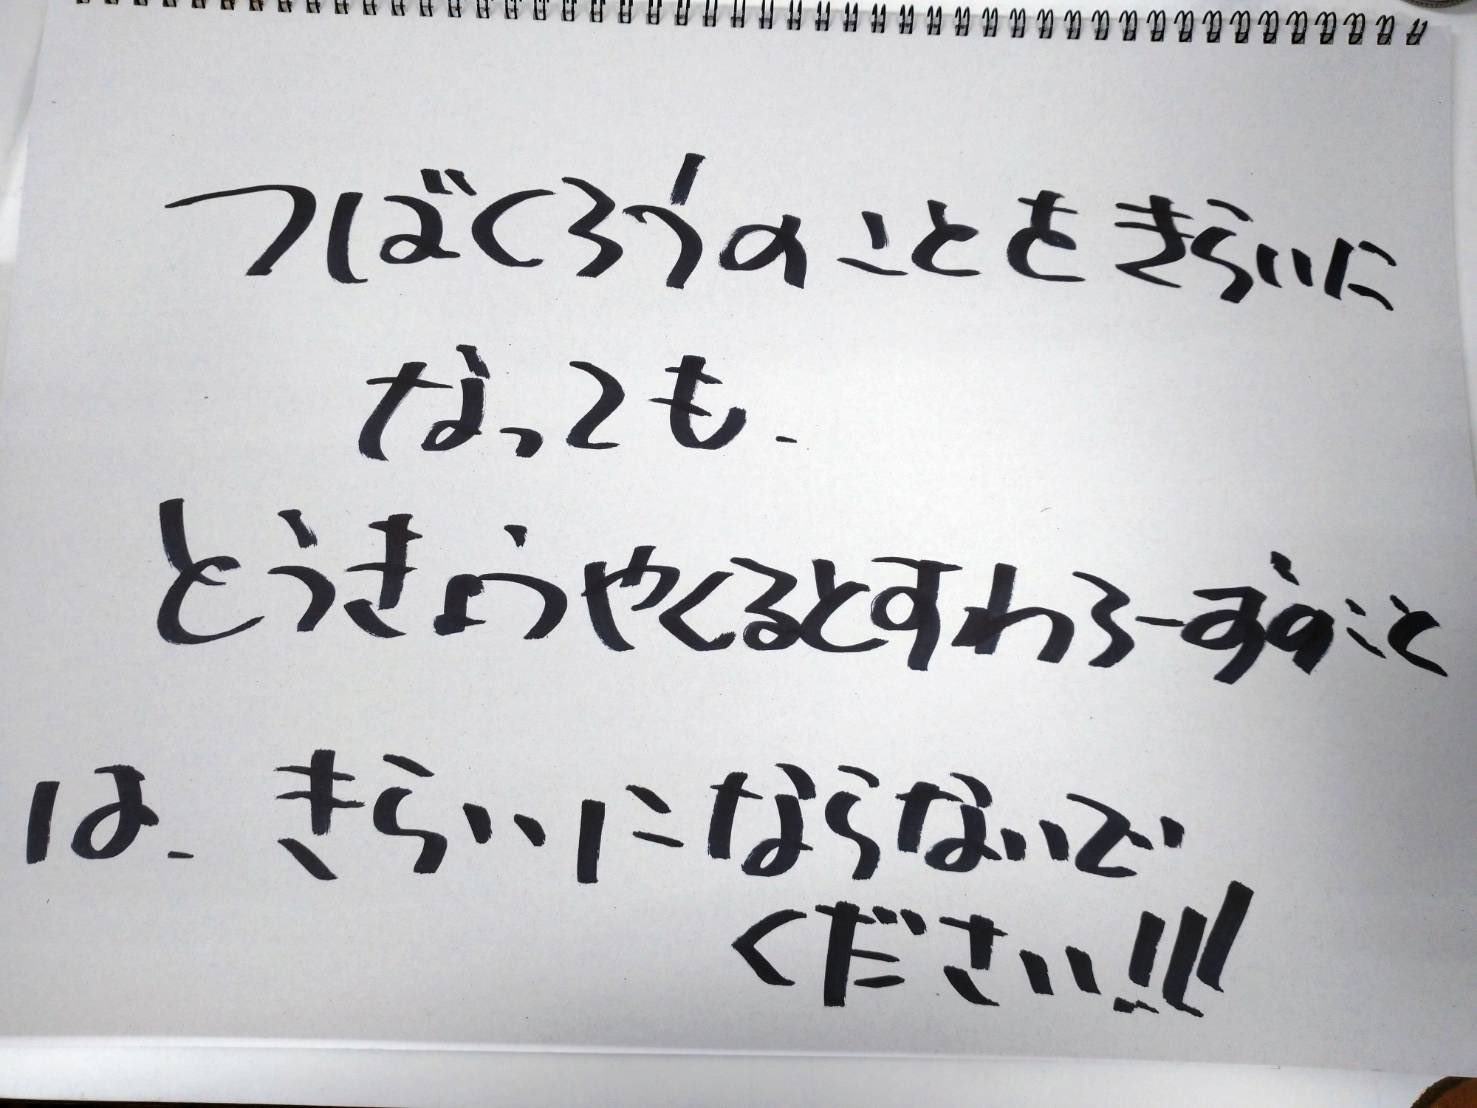 つばくろうのことをきらいに
なっても、
とうきょうやくるとすわろーずのこと
は、きらいにならないで
ください!!!